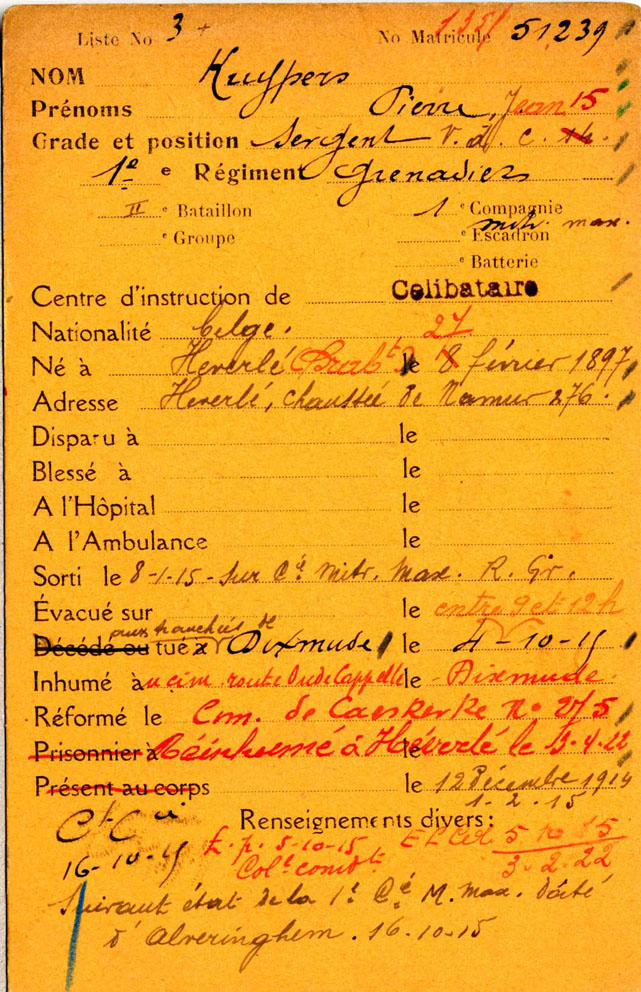 Liste No 3 No Matricule 51239
NOM Kuypers
Prénoms Pierre, Jean 15
Grade et position Sergent V. d. C.
1e e Régiment Grenadiers
II e Bataillon 1 e Compagnie
mitr. max.
e Groupe e Escadron
e Batterie
Centre d'instruction de Celibataire
Nationalité belge. 27
Né à Heverlé Brabt le 8 février 1897
Adresse Heverlé, chaussée de Namur 276.
Disparu à le
Blessé à le
A l'Hôpital le
A l'Ambulance le
Sorti le 8-1-15 - sur Cie Mitr. Max. R. Gr.
Évacué sur le entre 9 et 12 h
aux tranchées de
Décédé ou tué à Dixmude le 4-10-15
Inhumé au cim. route Oudecappelle le Dixmude.
Réformé le Com. de Caeskerke No 275
Prisonnier à Réinhumé à Héverlé le 13.4.22
Présent au corps le 12 Décembre 1914
1.2.15
Renseignements divers :
Ct Cie
16-10-15
E. p. 5-10-15
Colt comdt
5 10 15
3.2.22
Suivant état de la 1e Cie M. Max. Daté
d'Alveringhem. 16.10.15